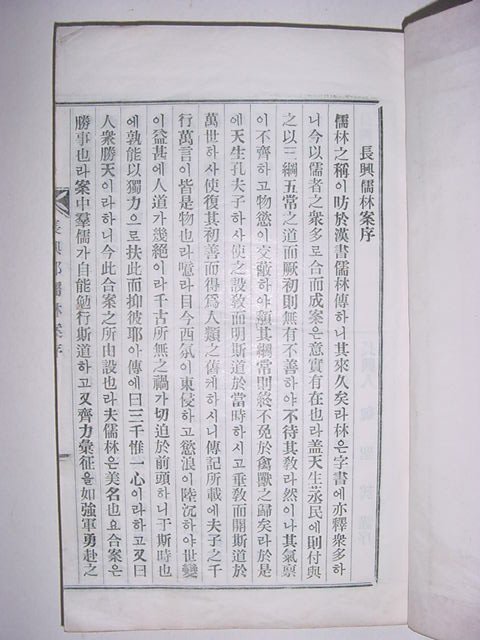 長興儒林案序
儒林之稱이昉於漢書儒林傳하니其來久矣라林은字書에亦釋衆多하
니今以儒者之衆多로合而成案은意實有在也라盖天生烝民에則付與
之以三綱五常之道而厥初則無有不善하야不待其敎라然이나其氣禀
이不齊하고物慾이交蔽하야頹其綱常則終不免於禽獸之歸矣라於是
에天生孔夫子하사使之設敎而明斯道於當時하시고垂敎而開斯道於
萬世하사使復其初善而得爲人類之舊케하시니傳記所載에夫子之千
行萬言이皆是物也라噫라目今西氛이東侵하고慾浪이陸沉하야世變
이益甚에人道가幾絕이라千古所無之禍가切迫於前頭하니于斯時也
에孰能以獨力으로扶此而抑彼耶아傳에曰三千惟一心이라하고又曰
人衆勝天이라하니今此合案之所由設也라夫儒林은美名也요合案은
勝事也라案中羣儒가自能勉行斯道하고又齊力彙征을如強軍勇赴之
長興郡儒林案序